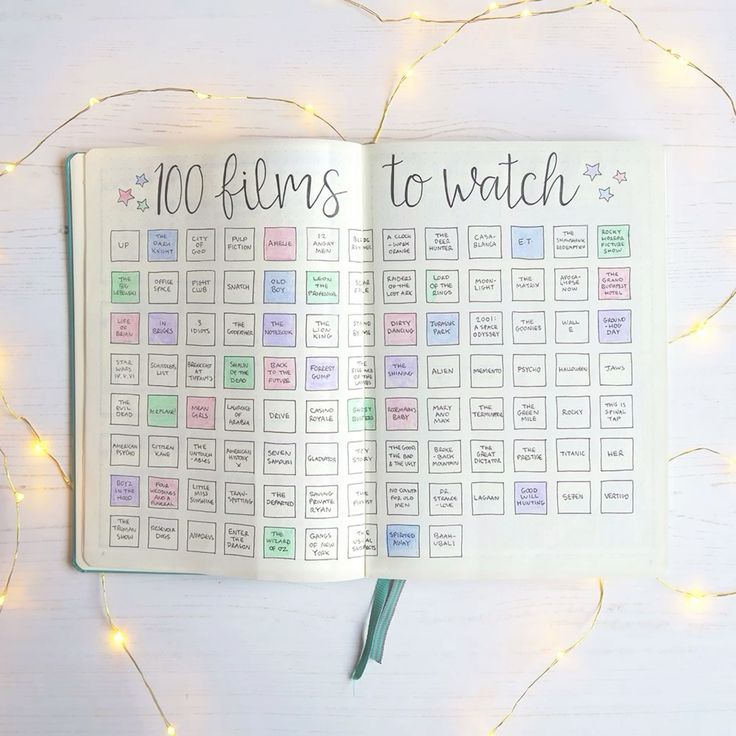 100 films to watch
UP
THE
DARK
KNIGHT
CITY
OF
GOD
PULP
FICTION
AMELIE
12
ANGRY
MEN
BLADE
RUNNER
A CLOCK
-WORK
ORANGE
THE
DEER
HUNTER
CASA-
BLANCA
E.T.
THE
SHAWSHANK
REDEMPTION
ROCKY
HORROR
PICTURE
SHOW
THE
BIG
LEBOWSKI
OFFICE
SPACE
FIGHT
CLUB
SNATCH
OLD
BOY
LEON THE
PROFESSIONAL
SCAR
FACE
RAIDERS
OF THE
LOST ARK
LORD
OF THE
RINGS
MOON-
LIGHT
THE
MATRIX
APOCA-
LIPSE
NOW
THE
GRAND
BUDAPEST
HOTEL
LIFE
OF
BRIAN
IN
BRUGES
3
IDIOTS
THE
GODFATHER
THE
NOTEBOOK
THE
LION
KING
STAND
BY ME
DIRTY
DANCING
JURASSIC
PARK
2001:
A SPACE
ODYSSEY
THE
GOONIES
WALL
E
GROUND
-HOG
DAY
STAR
WARS
IV, V, VI
SCHINDLERS
LIST
BREAKFAST
AT
TIFFANY'S
SHAUN
OF THE
DEAD
BACK
TO THE
FUTURE
FORREST
GUMP
THE
SILENCE
OF THE
LAMBS
THE
SHINING
ALIEN
MEMENTO
PSYCHO
HALLOWEEN
JAWS
THE
EVIL
DEAD
AIRPLANE!
MEAN
GIRLS
LAWRENCE
OF
ARABIA
DRIVE
CASINO
ROYALE
GHOST
BUSTERS
ROSEMARYS
BABY
MARY
AND
MAX
THE
TERMINATOR
THE
GREEN
MILE
ROCKY
THIS IS
SPINAL
TAP
AMERICAN
PSYCHO
CITIZEN
KANE
THE
UNTOUCH
-ABLES
AMERICAN
HISTORY
X
SEVEN
SAMURAI
GLADIATOR
TOY
STORY
THE GOOD,
THE BAD
& THE UGLY
BROKE
-BACK
MOUNTAIN
THE
GREAT
DICTATOR
THE
PRESTIGE
TITANIC
HER
BOYZ
IN THE
HOOD
FOUR
WEDDINGS
AND A
FUNERAL
LITTLE
MISS
SUNSHINE
TRAIN-
SPOTTING
THE
DEPARTED
SAVING
PRIVATE
RYAN
THE
PIANIST
NO COUNTRY
FOR OLD
MEN
DR.
STRANGE
-LOVE
LAGAAN
GOOD
WILL
HUNTING
SE7EN
VERTIGO
THE
TRUMAN
SHOW
RESEVOIR
DOGS
AMADEUS
ENTER
THE
DRAGON
THE
WIZARD
OF OZ
GANGS
OF NEW
YORK
THE
USUAL
SUSPECTS
SPIRITED
AWAY
BAAH-
UBALI